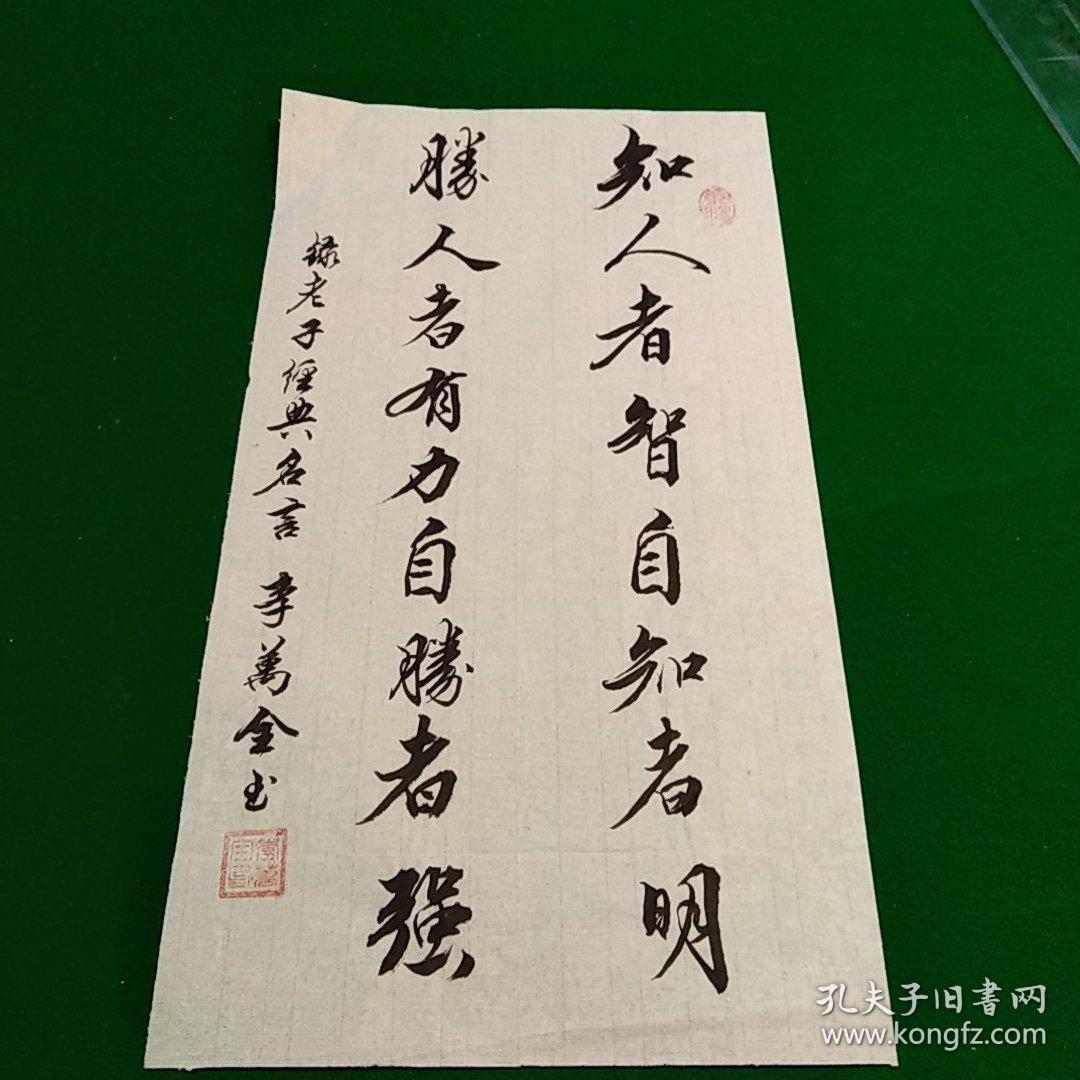 知人者智自知者明
勝人者有力自勝者强
録老子經典名言 李萬全书
孔夫子旧書网
www.kongfz.com